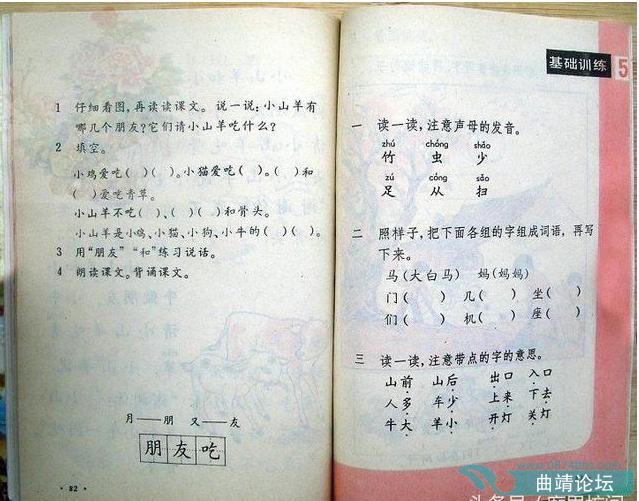 1 仔细看图,再读读课文。说一说:小山羊有
哪几个朋友?它们请小山羊吃什么?
2 填空。
小鸡爱吃( )( )。小猫爱吃( )。( )和
( )爱吃青草。
小山羊不吃( )、( )( )和骨头。
小山羊是小鸡、小猫、小狗、小牛的( )( )。
3 用“朋友”“和”练习说话。
4 朗读课文。背诵课文。
月——朋 又——友
朋友吃
· 82 ·
基础训练 5
一 读一读,注意声母的发音。
zhú chóng shǎo
竹 虫 少
zú cóng sǎo
足 从 扫
二 照样子,把下面各组的字组成词语,再写
下来。
马(大白马) 妈(妈妈)
门( ) 几( ) 坐( )
们( ) 机( ) 座( )
三 读一读,注意带点的字的意思。
山前 山后 出口 入口
人多 车少 上来 下去
牛大 羊小 开灯 关灯
曲靖论坛